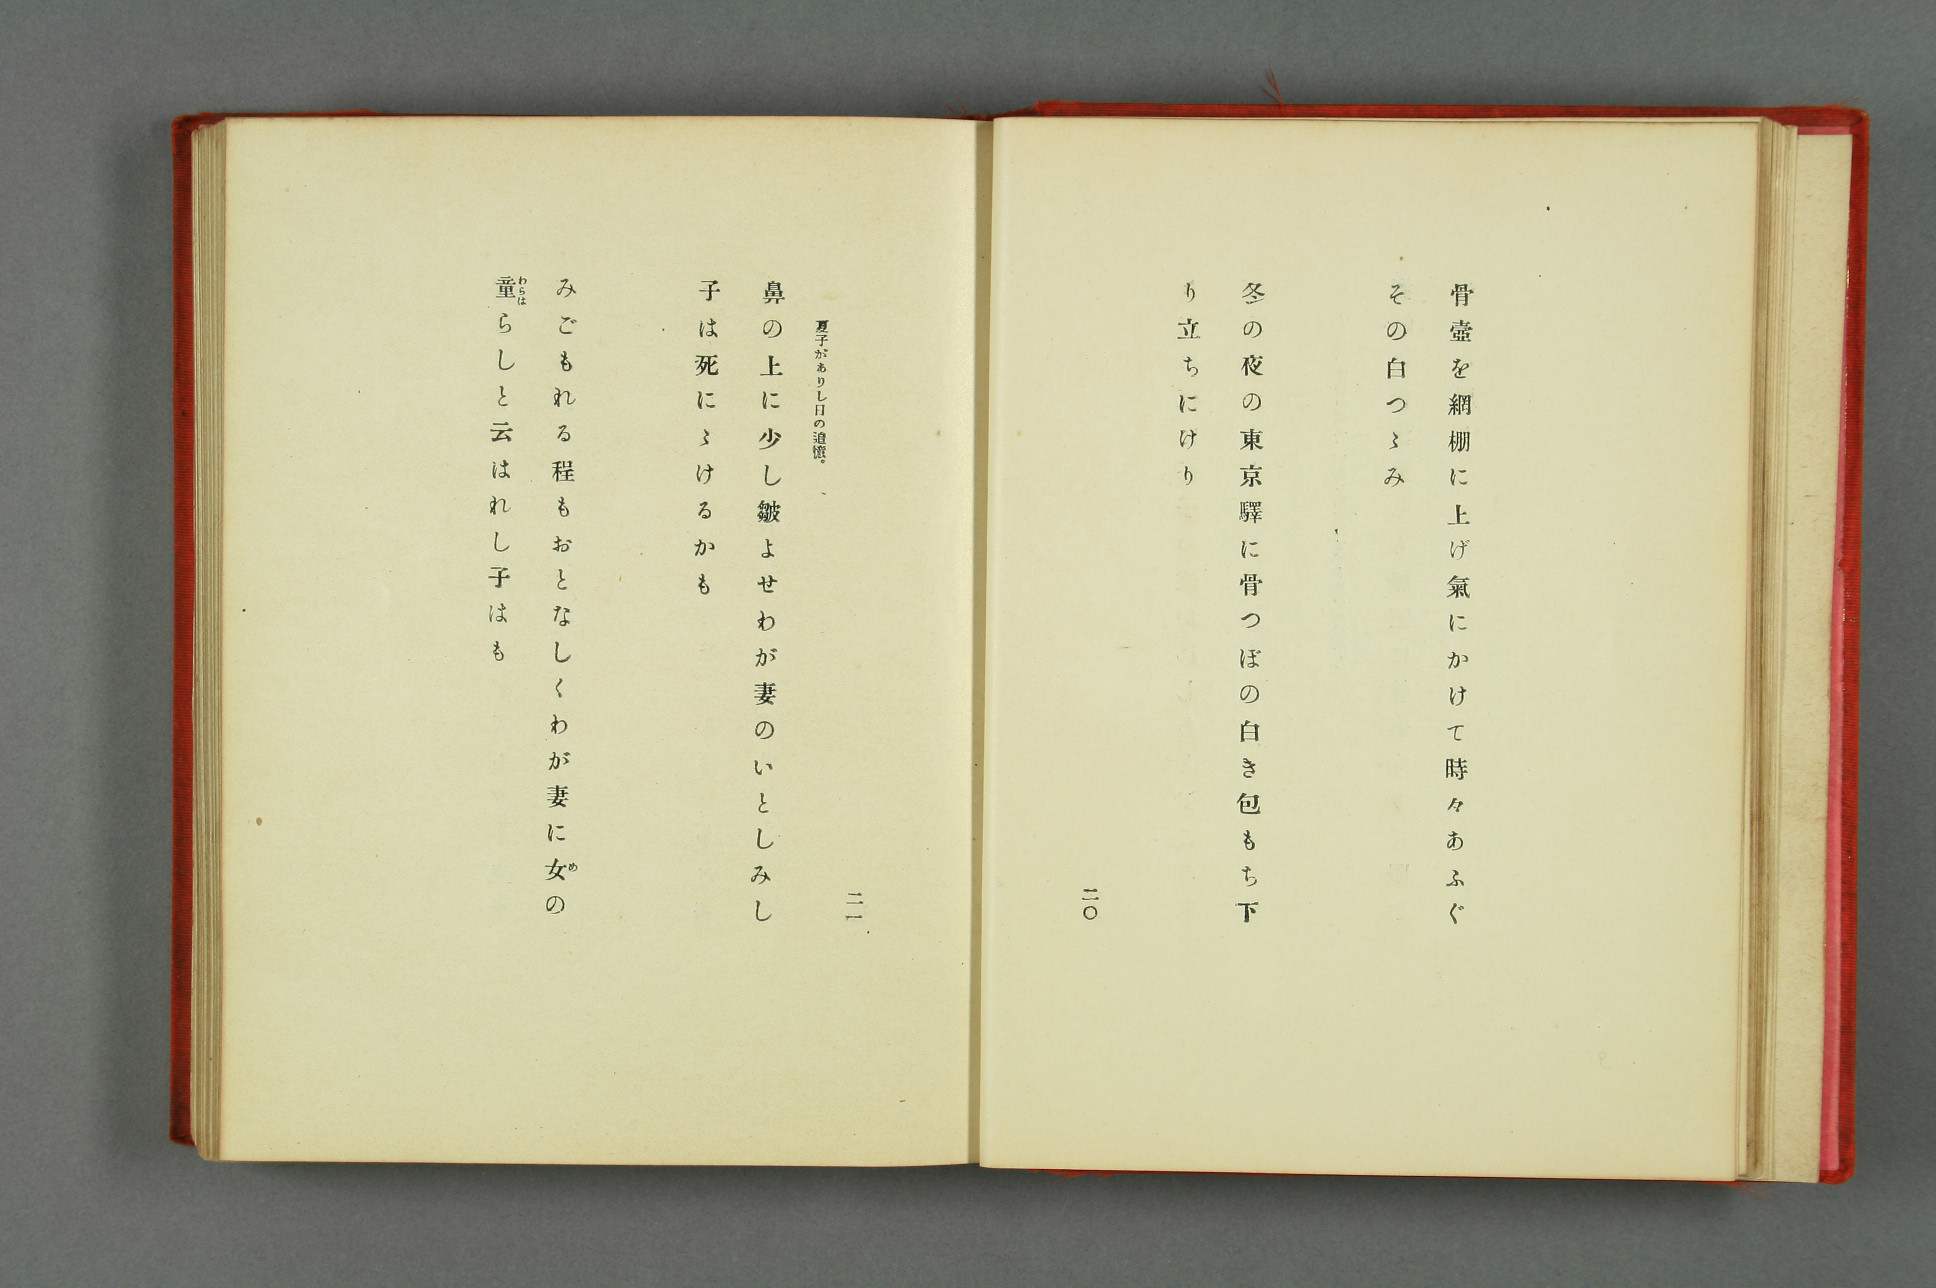 骨壺を網棚に上げ氣にかけて時々あふぐ
その白つゝみ
冬の夜の東京驛に骨つぼの白き包もち下
り立ちにけり
二〇
夏子がありし日の追懷。
鼻の上に少し皺よせわが妻のいとしみし
子は死にゝけるかも
みごもれる程もおとなしくわが妻に女の
め
童らしと云はれし子はも
わらは
二一